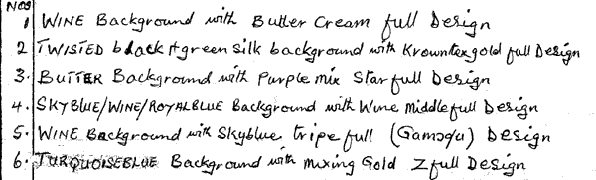 NOS
1 WINE Background with Butter Cream full Design
2 TWISTED black & green silk background with Krowntex gold full Design
3. BUTTER Background with Purple mix Star full Design
4. SKYBLUE/WINE/ROYALBLUE Background with Wine Middle full Design
5. WINE Background with Skyblue tripe full (Gamogu) Design
6. TURQUOISEBLUE Background with mixing Gold Z full Design